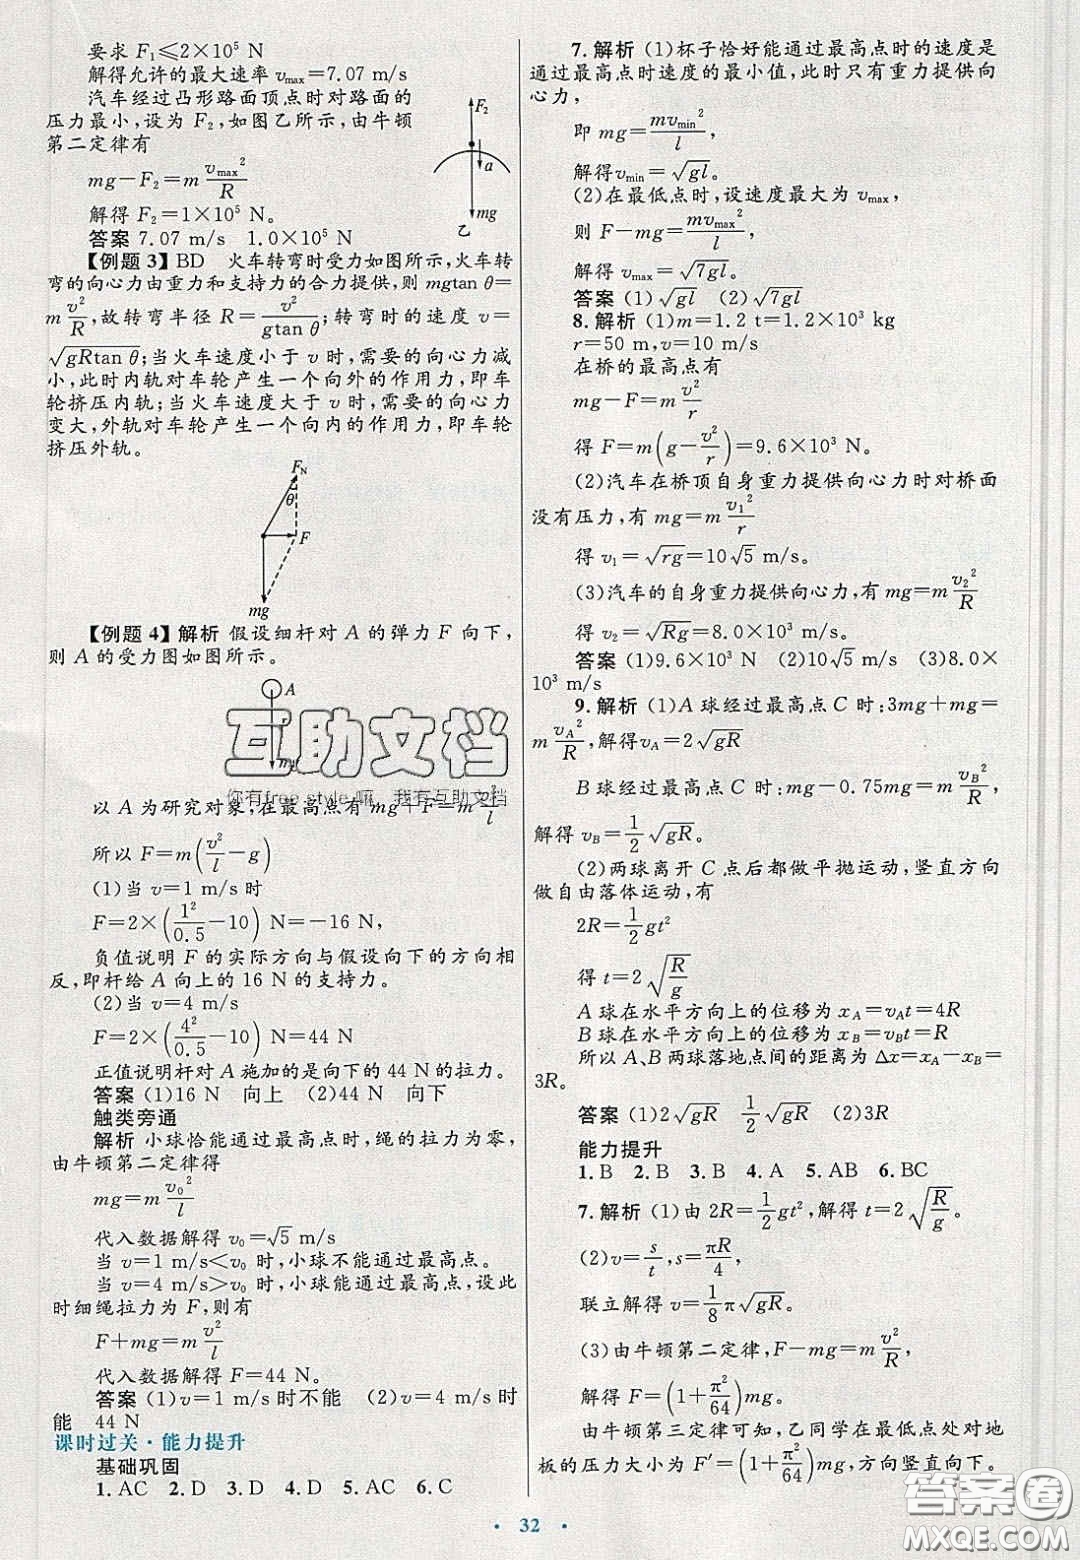 要求 F₁≤2×10⁵ N
解得允许的最大速率 vmax=7.07 m/s
汽车经过凸形路面顶点时对路面的
压力最小,设为 F₂,如图乙所示,由牛顿
第二定律有
mg-F₂=m vmax²/R
解得 F₂=1×10⁵ N。
答案 7.07 m/s 1.0×10⁵ N
F₂
a
mg
乙
【例题 3】BD 火车转弯时受力如图所示,火车转
弯的向心力由重力和支持力的合力提供,则 mgtan θ=
m v²/R,故转弯半径 R=v²/(gtan θ);转弯时的速度 v=
√(gRtan θ);当火车速度小于 v 时,需要的向心力减
小,此时内轨对车轮产生一个向外的作用力,即车
轮挤压内轨;当火车速度大于 v 时,需要的向心力
变大,外轨对车轮产生一个向内的作用力,即车轮
挤压外轨。
FN
θ
F
mg
【例题 4】解析 假设细杆对 A 的弹力 F 向下,
则 A 的受力图如图所示。
A
互助文档
你有free style嘛,我有互助文档
以 A 为研究对象,在最高点有 mg+F=m v²/l
所以 F=m(v²/l-g)
(1)当 v=1 m/s 时
F=2×(1²/0.5-10) N=-16 N,
负值说明 F 的实际方向与假设向下的方向相
反,即杆给 A 向上的 16 N 的支持力。
(2)当 v=4 m/s
F=2×(4²/0.5-10) N=44 N
正值说明杆对 A 施加的是向下的 44 N 的拉力。
答案 (1)16 N 向上 (2)44 N 向下
触类旁通
解析 小球恰能通过最高点时,绳的拉力为零,
由牛顿第二定律得
mg=m v₀²/l
代入数据解得 v₀=√5 m/s
当 v=1 m/s<v₀ 时,小球不能通过最高点。
当 v=4 m/s>v₀ 时,小球能通过最高点,设此
时细绳拉力为 F,则有
F+mg=m v²/l
代入数据解得 F=44 N。
答案 (1)v=1 m/s 时不能 (2)v=4 m/s 时
能 44 N
课时过关·能力提升
基础巩固
1. AC 2. D 3. D 4. D 5. AC 6. C
7. 解析 (1)杯子恰好能通过最高点时的速度是
通过最高点时速度的最小值,此时只有重力提供向
心力,
即 mg=mvmin²/l,
解得 vmin=√(gl)。
(2)在最低点时,设速度最大为 vmax,
则 F-mg=mvmax²/l,
解得 vmax=√(7gl)。
答案 (1)√(gl) (2)√(7gl)
8. 解析 (1)m=1.2 t=1.2×10³ kg
r=50 m,v=10 m/s
在桥的最高点有
mg-F=m v²/r
得 F=m(g-v²/r)=9.6×10³ N。
(2)汽车在桥顶自身重力提供向心力时对桥面
没有压力,有 mg=m v₁²/r
得 v₁=√(rg)=10√5 m/s。
(3)汽车的自身重力提供向心力,有 mg=m v₂²/R
得 v₂=√(Rg)=8.0×10³ m/s。
答案 (1)9.6×10³ N (2)10√5 m/s (3)8.0×
10³ m/s
9. 解析 (1)A 球经过最高点 C 时:3mg+mg=
m vA²/R,解得 vA=2√(gR)
B 球经过最高点 C 时:mg-0.75mg=m vB²/R,
解得 vB=1/2√(gR)。
(2)两球离开 C 点后都做平抛运动,竖直方向
做自由落体运动,有
2R=1/2gt²
得 t=2√(R/g)
A 球在水平方向上的位移为 xA=vAt=4R
B 球在水平方向上的位移为 xB=vBt=R
所以 A、B 两球落地点间的距离为 Δx=xA-xB=
3R。
答案 (1)2√(gR) 1/2√(gR) (2)3R
能力提升
1. B 2. B 3. B 4. A 5. AB 6. BC
7. 解析 (1)由 2R=1/2gt²,解得 t=2√(R/g)。
(2)v=s/t,s=πR/4,
联立解得 v=1/8π√(gR)。
(3)由牛顿第二定律,F-mg=m v²/R,
解得 F=(1+π²/64)mg。
由牛顿第三定律可知,乙同学在最低点处对地
板的压力大小为 F′=(1+π²/64)mg,方向竖直向下。
· 32 ·
答案圈
MXQE.COM